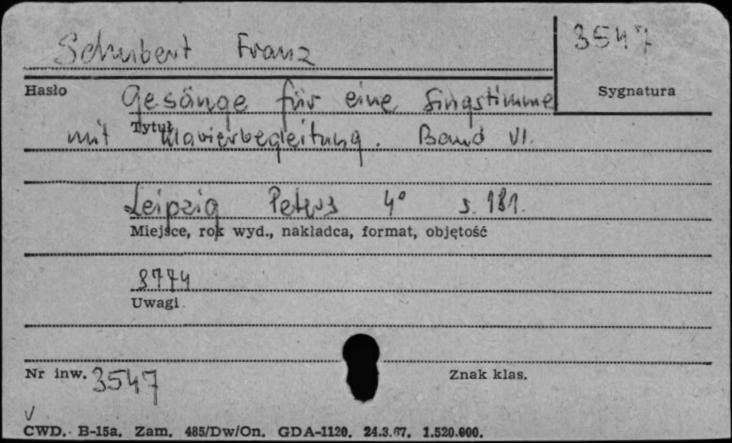 Schubert Franz
3547
Hasło
Sygnatura
Gesänge für eine Singstimme
Tytuł
mit Klavierbegleitung. Band VI.
Leipzig Peters 4° s. 181.
Miejsce, rok wyd., nakładca, format, objętość
8774
Uwagi
Nr inw. 3547
Znak klas.
V
CWD. B-15a. Zam. 485/Dw/On. GDA-1120. 24.3.67. 1.520.000.